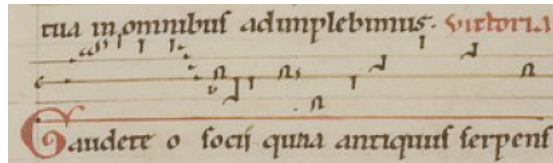 tua in omnibus adimplebimus. victoria
Gaudete o socij quia antiquus serpens